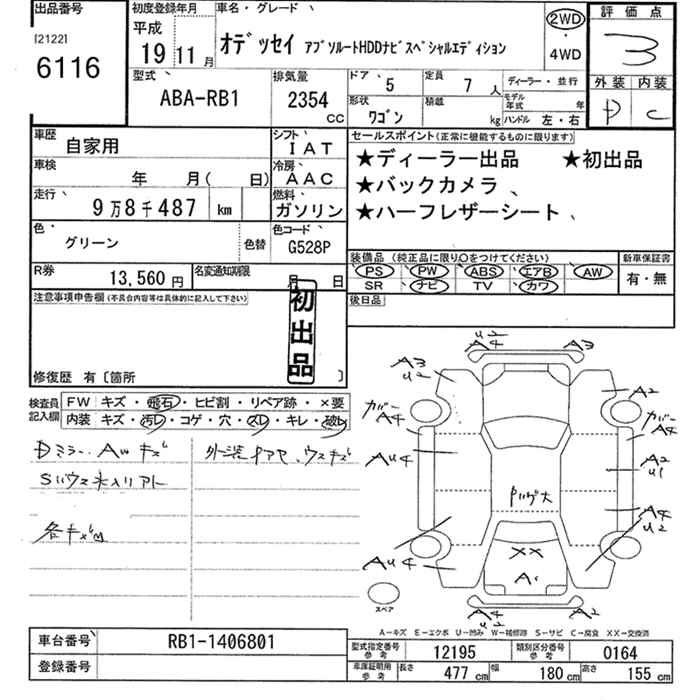 出品番号
[2122]
6116
初度登録年月
平成
19 11 月
車名・グレード
オデッセイ アブソルートHDDナビスペシャルエディション
2WD
・
4WD
評価点
3
外装 内装
D C
型式
ABA-RB1
排気量
2354
CC
ドア 5
定員 7 人
ディーラー・並行
形状 ワゴン
積載 kg
モデル年式 年
ハンドル 左・右
車歴 自家用
シフト IAT
車検 年 月( 日)
冷房 AAC
走行 9万8千487 km
燃料 ガソリン
色 グリーン
色替
色コード G528P
R券 13,560円
名変通知期限 月 日
セールスポイント(正常に機能するものに限ります)
★ディーラー出品 ★初出品
★バックカメラ
★ハーフレザーシート
装備品(純正品に限り○をつけてください)
PS PW ABS エアB AW
SR ナビ TV カワ
新車保証書
有・無
後日品
注意事項申告欄(不具合内容等は具体的に記入して下さい)
初出品
修復歴 有〔箇所 〕
検査員記入欄
FW キズ・飛石・ヒビ割・リペア跡・×要
内装 キズ・汚レ・コゲ・穴・スレ・キレ・破レ
各キズ凹
A3
U2
U2
A4
A3
A2
カバー
A4
カバー
A4
AU4
A2
U1
A4
U2
AU4
XX
A1
A4
U2
A3
U2
スペア
A−キズ E−エクボ U−凹み W−補修跡 S−サビ C−腐食 XX−交換済
車台番号 RB1-1406801
登録番号
型式指定番号 参考 12195
類別区分番号 参考 0164
車庫証明用 参考 長さ 477 cm 幅 180 cm 高さ 155 cm